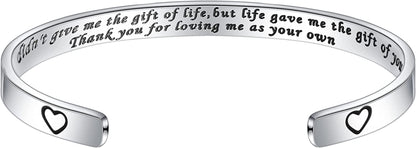 didn't give me the gift of life, but life gave me the gift of you
Thank you for loving me as your own